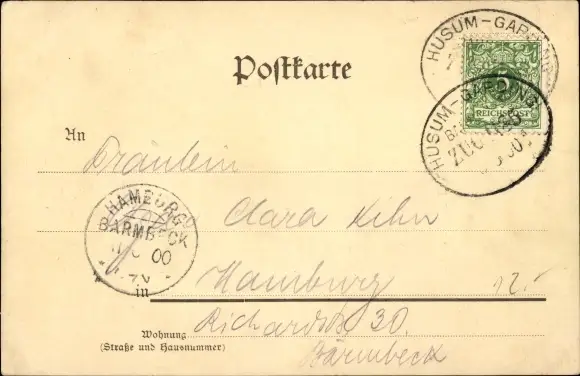 HUSUM-GARDING
Postkarte
5
REICHSPOST
HUSUM-GARDING
ZUG
An
Fräulein
Clara Kihn
HAMBURG
BARMBECK
00
in
Hamburg 12.-
Richardstr. 30.
Wohnung
(Straße und Hausnummer)
Barmbeck